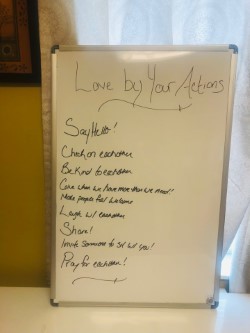 Love by Your Actions
Say Hello!
Check on eachother
Be Kind to eachother
when we have more than we need!
Make people feel welcome
Laugh w/ eachother
Share!
Invite someone to sit w/ you!
Pray for eachother!